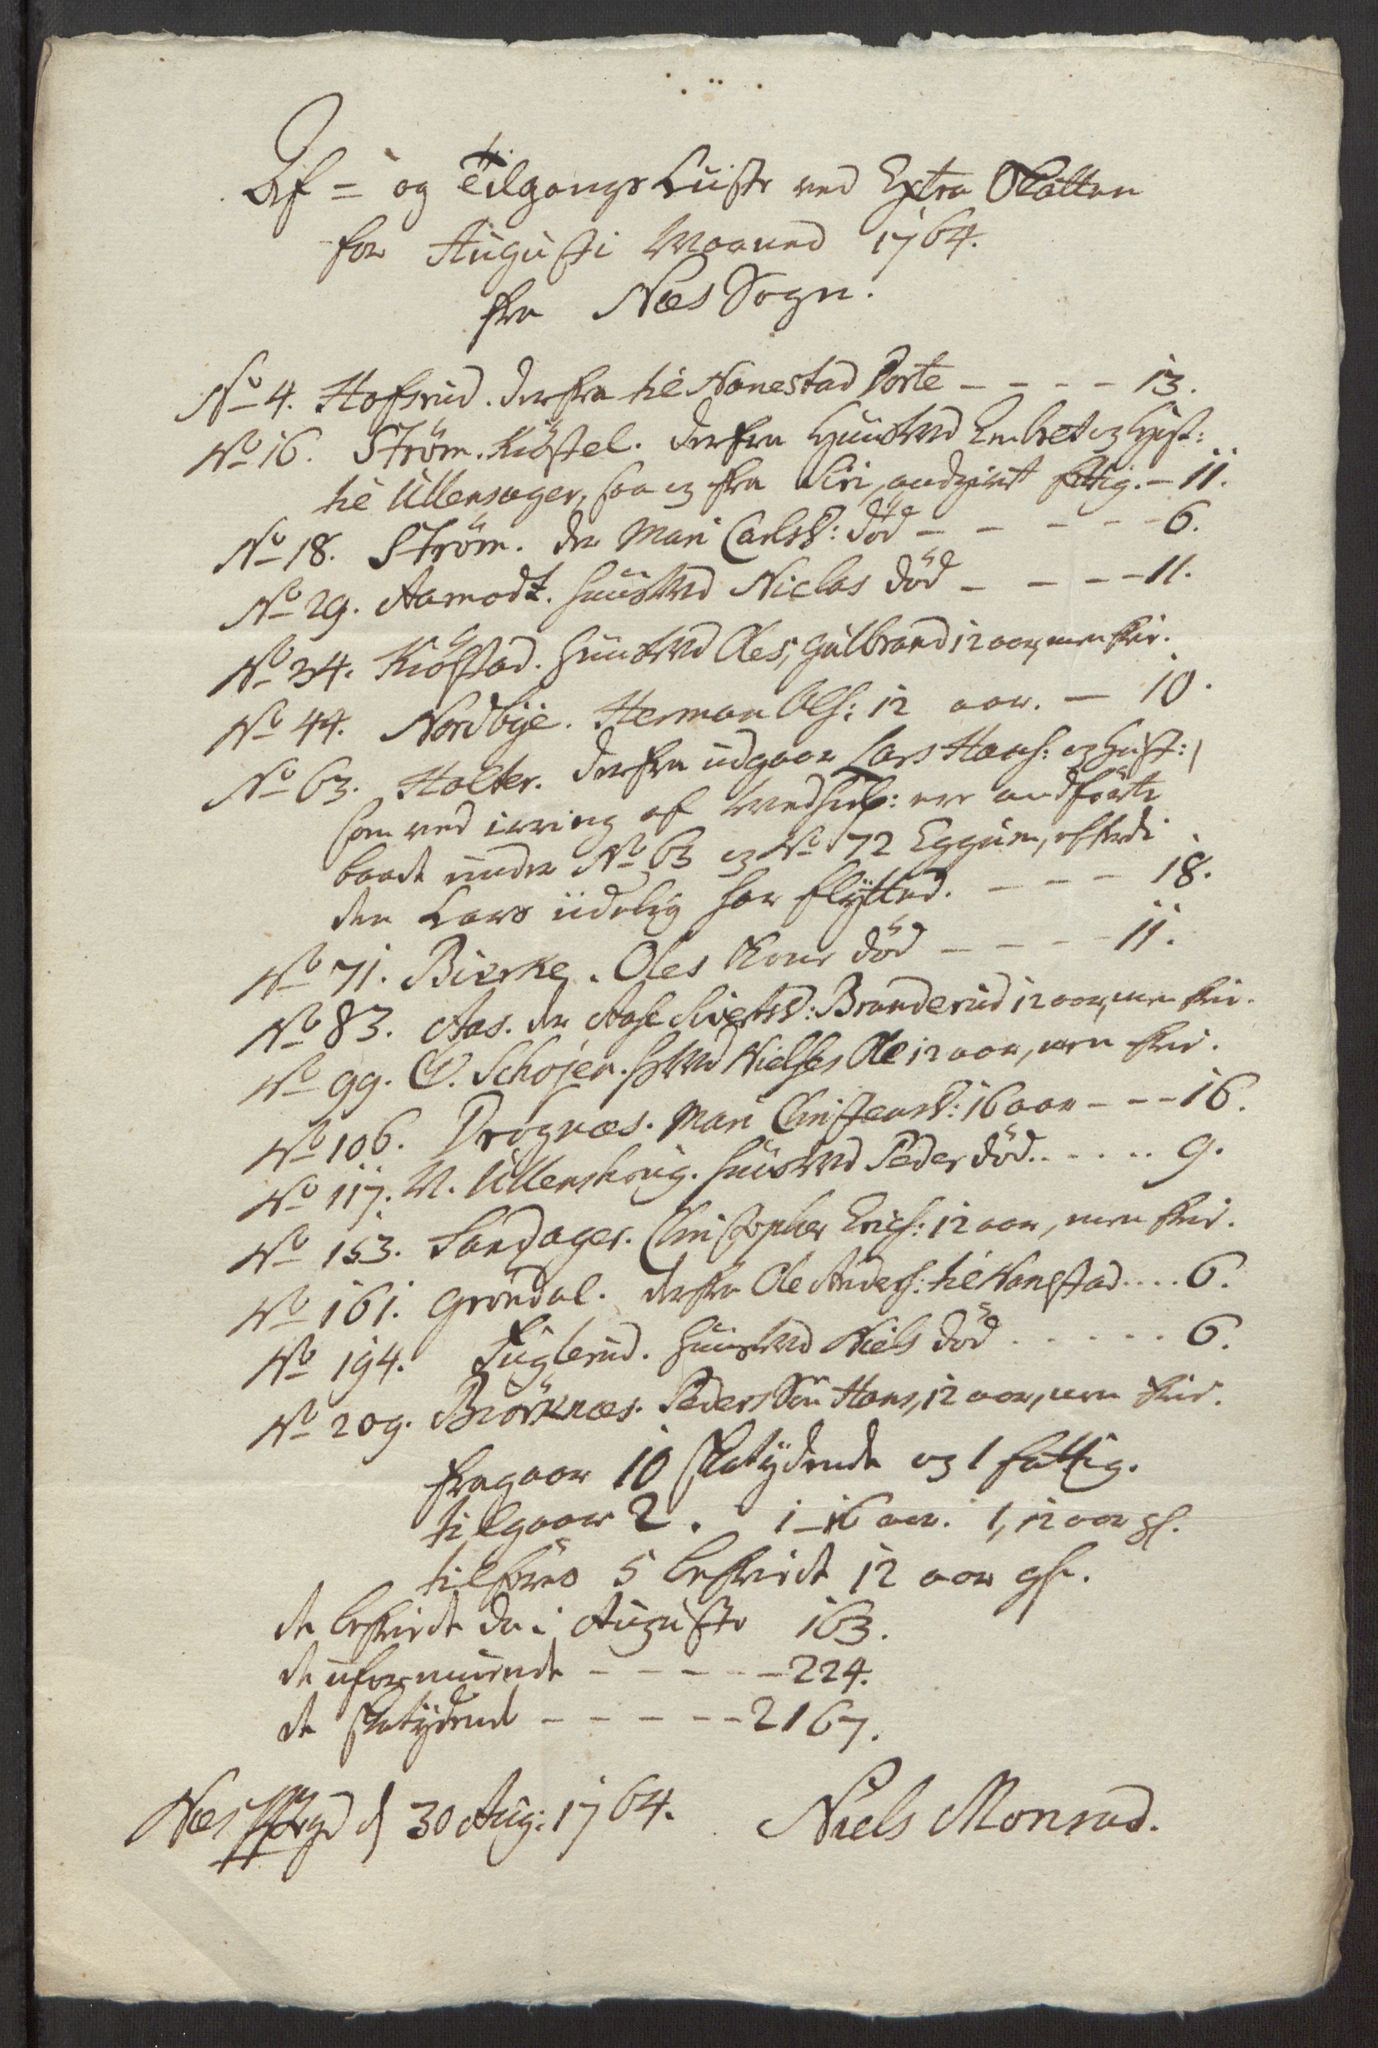 Af= og Tilgangs Liste ved Extra Skatten
for Augusti Maaned 1764.
fra Næs Sogn.
No 4. Hofsrud. derfra til Nanestad Dorte - - - - 13.
No 16. Strøm. Kiøstel. derfra Huusmd Embret og Hust:
til Ullensager, saa og fra Siri, andgivt fatig. - 11.
No 18. Strøm. der Mari Carlsd: død - - - - - 6.
No 29. Aamodt. Huusmd Niclas død - - - - 11.
No 34. Kiøstad. Huusmd Oles, Gulbrand 12 aar, men frie.
No 44. Nordbÿe. Herman Ols: 12 aar. - 10.
No 63. Holter. derfra udgaar Lars Hans: og Hust:,
som ved irring af Medhielp: ere andførte
baade under No 63 og No 72 Eggum, efterdi
den Lars iidelig har flÿtted. - - - 18.
No 71. Bierke. Oles Kone død - - - - 11.
No 83. Aas. der Aase Sivertsd: Branderud 12 aar, men frie.
No 99. O. Schojen. Hmd Nielses Ole 12 aar, men frie.
No 106. Drognæs. Mari Christensd: 16 aar - - - 16.
No 117. N. Ullershoug. Huusmd Peder død. . . . . . 9.
No 153. Sandager. Christopher Erics: 12 aar, men frie.
No 161. Grøndal. derfra Ole Anders: til Nanestad . . . . 6.
No 194. Fuglerud. Huusmd Niels død . . . . . . 6.
No 209. Biørknæs. Peders Søn Hans, 12 aar, men frie.
fragaar 10 skatÿdende og 1 fattig.
tilgaar 2. 1 - 16 aar. 1, 12 aar gl.
tilføres 5 befriede 12 aar gle.
de befriede da i Augusto 163.
de uformuende - - - - - 224.
de skatÿdende - - - - - 2167.
Næs Præstegrd d 30 Aug: 1764. Niels Monrad.